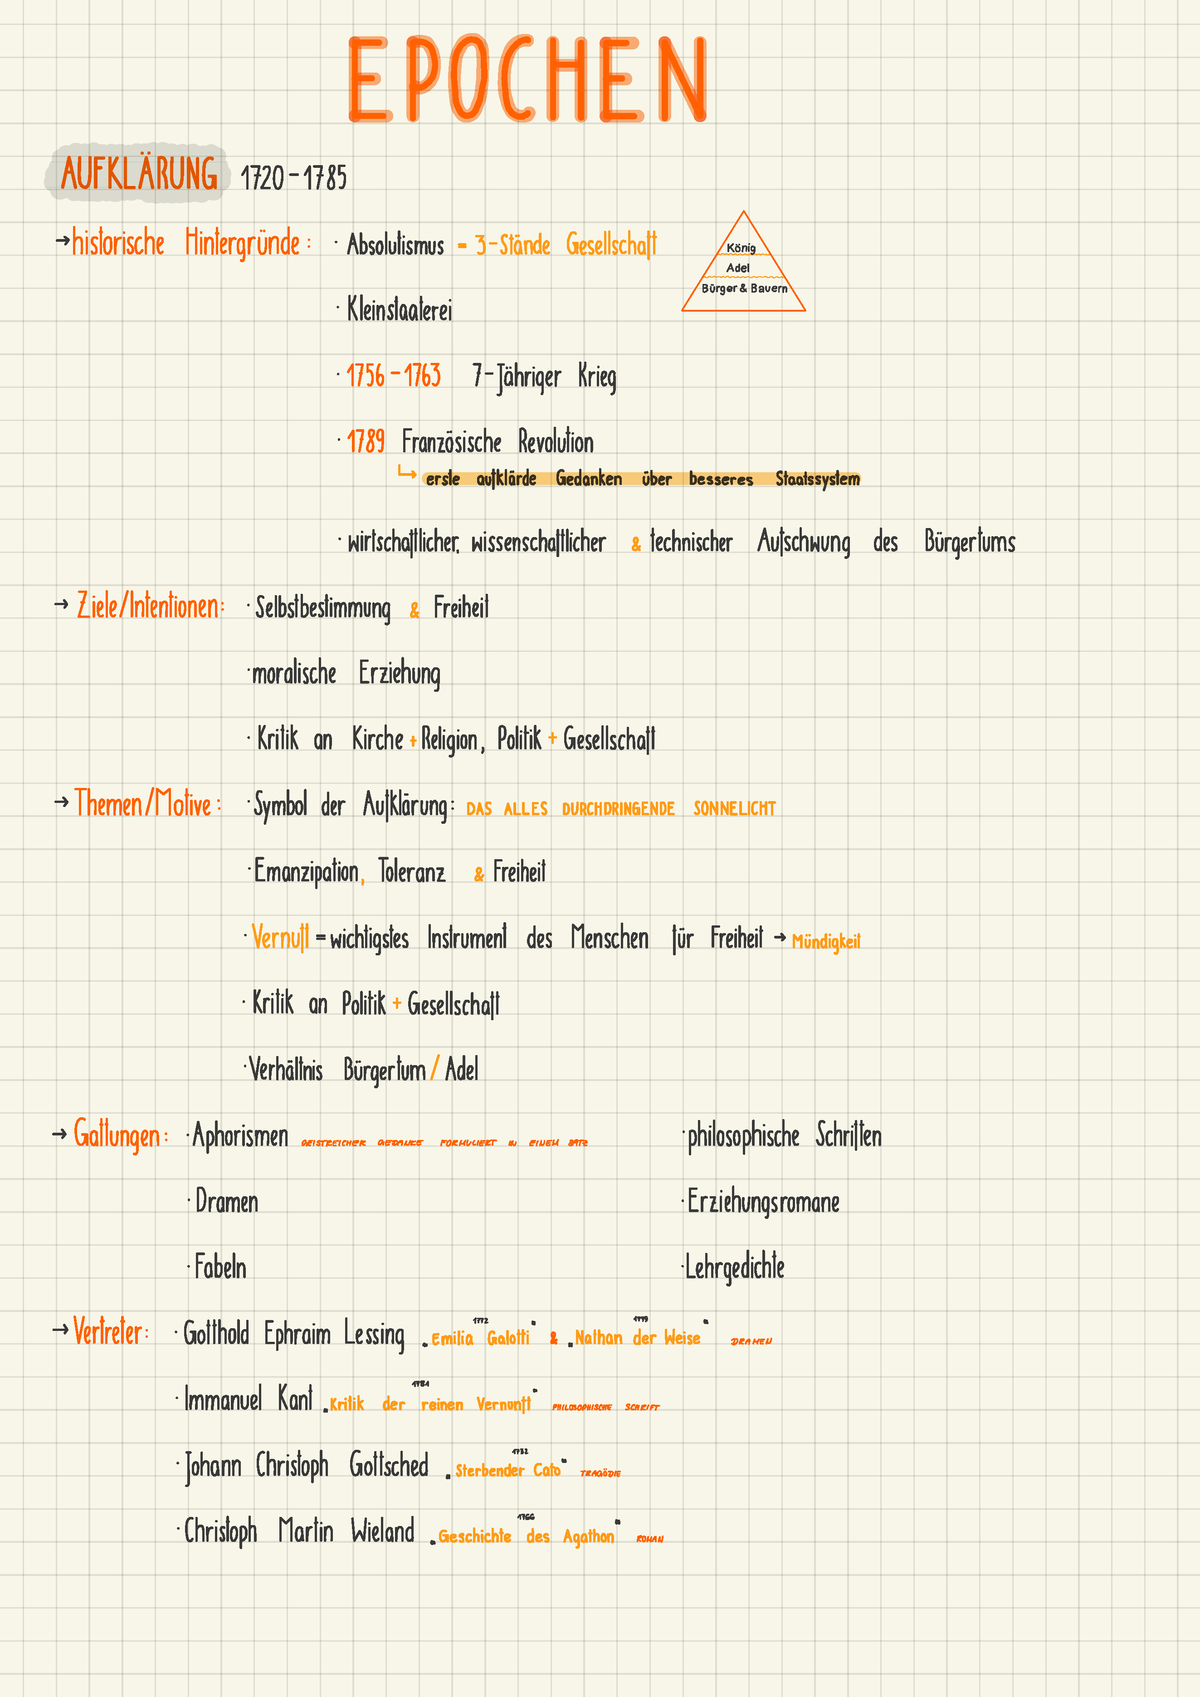 EPOCHEN
AUFKLÄRUNG 1720-1785
→ historische Hintergründe: · Absolutismus = 3-Stände Gesellschaft
König
Adel
Bürger & Bauern
· Kleinstaaterei
· 1756-1763 7-Jähriger Krieg
· 1789 Französische Revolution
↳ erste aufklärde Gedanken über besseres Staatssystem
· wirtschaftlicher, wissenschaftlicher & technischer Aufschwung des Bürgertums
→ Ziele/Intentionen: · Selbstbestimmung & Freiheit
· moralische Erziehung
· Kritik an Kirche + Religion, Politik + Gesellschaft
→ Themen/Motive: · Symbol der Aufklärung: DAS ALLES DURCHDRINGENDE SONNELICHT
· Emanzipation, Toleranz & Freiheit
· Vernuft = wichtigstes Instrument des Menschen für Freiheit → Mündigkeit
· Kritik an Politik + Gesellschaft
· Verhältnis Bürgertum / Adel
→ Gattungen: · Aphorismen GEISTREICHER GEDANKE FORMULIERT IN EINEM SATZ · philosophische Schriften
· Dramen · Erziehungsromane
· Fabeln · Lehrgedichte
→ Vertreter: · Gotthold Ephraim Lessing „Emilia Galotti" 1772 & „Nathan der Weise" 1779 DRAMEN
· Immanuel Kant „Kritik der reinen Vernunft" 1781 PHILOSOPHISCHE SCHRIFT
· Johann Christoph Gottsched „Sterbender Cato" 1732 TRAGÖDIE
· Christoph Martin Wieland „Geschichte des Agathon" 1766 ROMAN